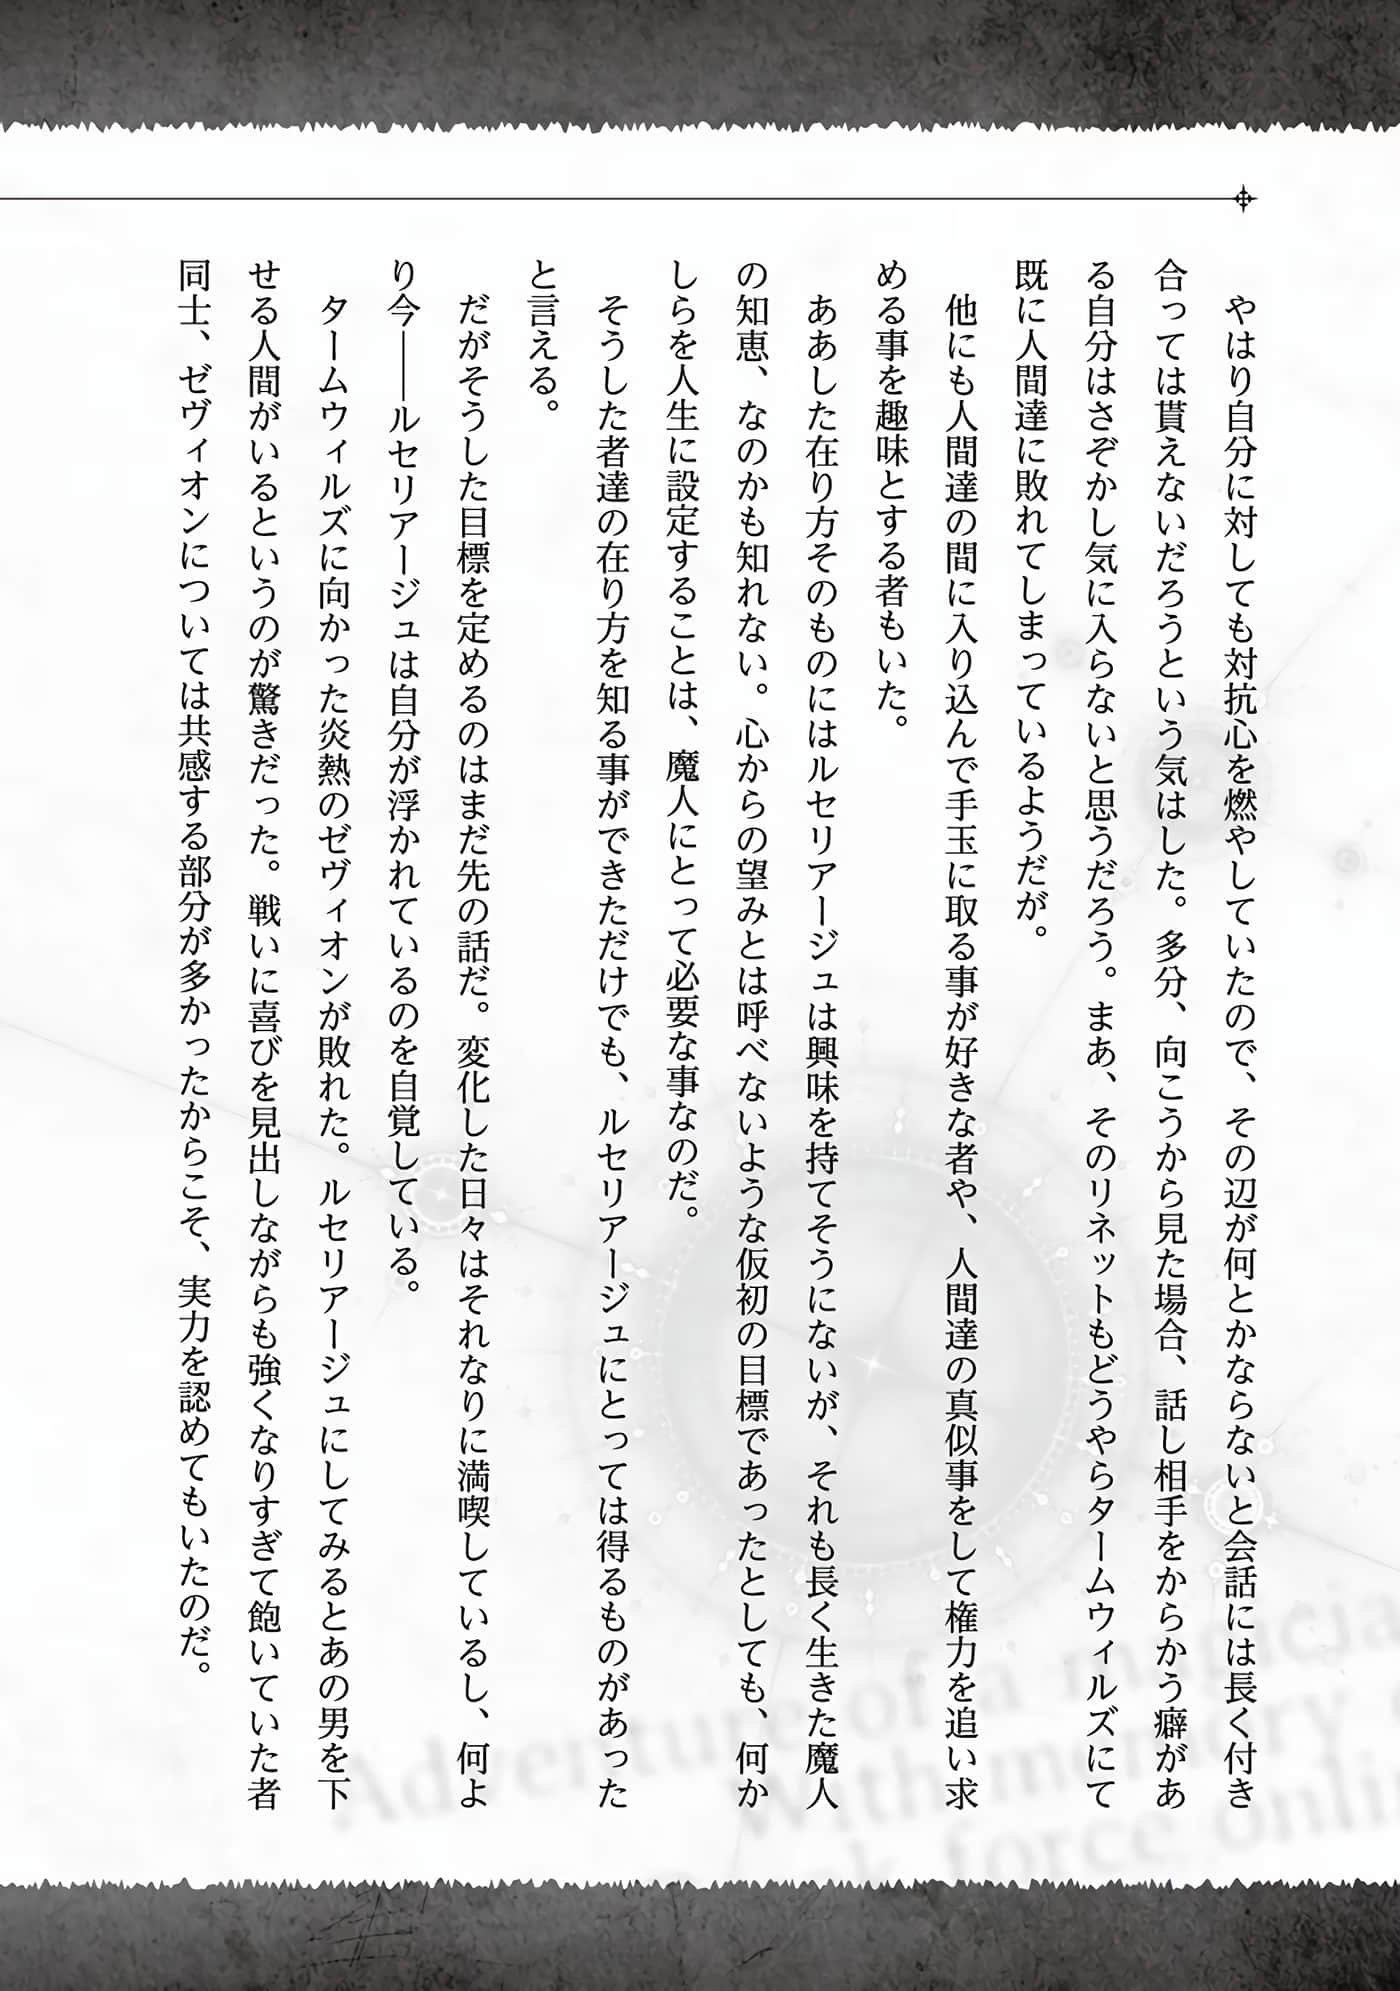 やはり自分に対しても対抗心を燃やしていたので、その辺が何とかならないと会話には長く付き
合っては貰えないだろうという気はした。多分、向こうから見た場合、話し相手をからかう癖があ
る自分はさぞかし気に入らないと思うだろう。まあ、そのリネットもどうやらタームウィルズにて
既に人間達に敗れてしまっているようだが。
　他にも人間達の間に入り込んで手玉に取る事が好きな者や、人間達の真似事をして権力を追い求
める事を趣味とする者もいた。
　ああした在り方そのものにはルセリアージュは興味を持てそうにないが、それも長く生きた魔人
の知恵、なのかも知れない。心からの望みとは呼べないような仮初の目標であったとしても、何か
しらを人生に設定することは、魔人にとって必要な事なのだ。
　そうした者達の在り方を知る事ができただけでも、ルセリアージュにとっては得るものがあった
と言える。
　だがそうした目標を定めるのはまだ先の話だ。変化した日々はそれなりに満喫しているし、何よ
り今――ルセリアージュは自分が浮かれているのを自覚している。
　タームウィルズに向かった炎熱のゼヴィオンが敗れた。ルセリアージュにしてみるとあの男を下
せる人間がいるというのが驚きだった。戦いに喜びを見出しながらも強くなりすぎて飽いていた者
同士、ゼヴィオンについては共感する部分が多かったからこそ、実力を認めてもいたのだ。
Adventure of a magicia
With memory
force onli